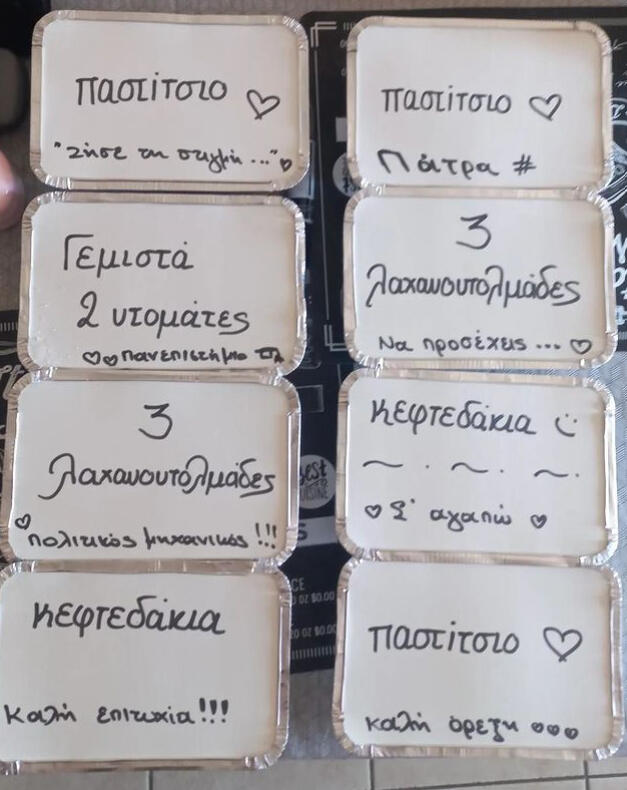 παστίτσιο ♡
"Ζήσε τη στιγμή ..." ♡
παστίτσιο ♡
Πάτρα #
Γεμιστά
2 ντομάτες
♡♡ πανεπιστήμιο
3
λαχανοντολμάδες
Να προσέχεις ... ♡
3
λαχανοντολμάδες
♡ πολιτικός μηχανικός !!!
κεφτεδάκια
♡ Σ' αγαπώ ♡
κεφτεδάκια
καλή επιτυχία !!!
παστίτσιο ♡
καλή όρεξη